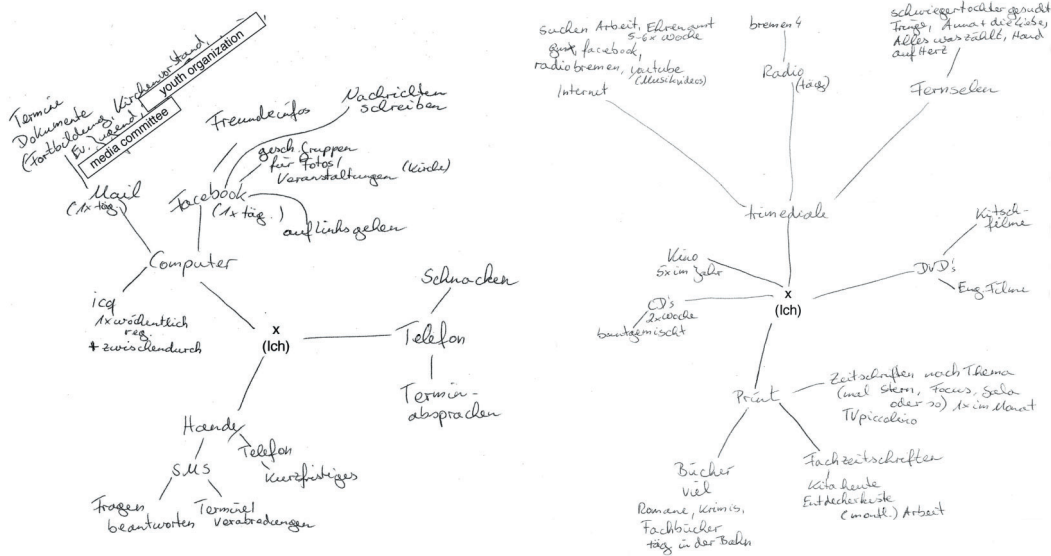 Termine
Dokumente
(Fortbildung, Kirchenvorstand,
Ev. Jugend,
youth organization
media committee
Mail
(1x täg.)
Freundeinfos
Nachrichten
schreiben
gesch. Gruppen
für Fotos/
Veranstaltungen (Kirche)
Facebook
(1x täg.)
auf Links gehen
Computer
icq
1x wöchentlich
reg.
+ zwischendurch
x
(Ich)
Schnacken
Telefon
Termin-
absprachen
Handy
Telefon
Kurzfristiges
SMS
Fragen
beantworten
Termine/
Verabredungen
suchen Arbeit, Ehrenamt
5-6x Woche
gmx, facebook,
radiobremen, youtube
(Musikvideos)
Internet
bremen 4
Radio
(täg.)
schwiegertochter gesucht
Anna + die Liebe,
Alles was zählt, Hand
aufs Herz
Fernsehen
trimediale
Kino
5x im Jahr
CD's
2x Woche
buntgemischt
x
(Ich)
DVD's
Kitsch-
filme
Eng. Filme
Print
Zeitschriften nach Thema
(mal stern, Focus, Gala
oder so) 1x im Monat
TVpiccolino
Bücher
viel
Romane, Krimis,
Fachbücher
täg. in der Bahn
Fachzeitschriften
Kita heute
Entdeckerkiste
(montl.) Arbeit